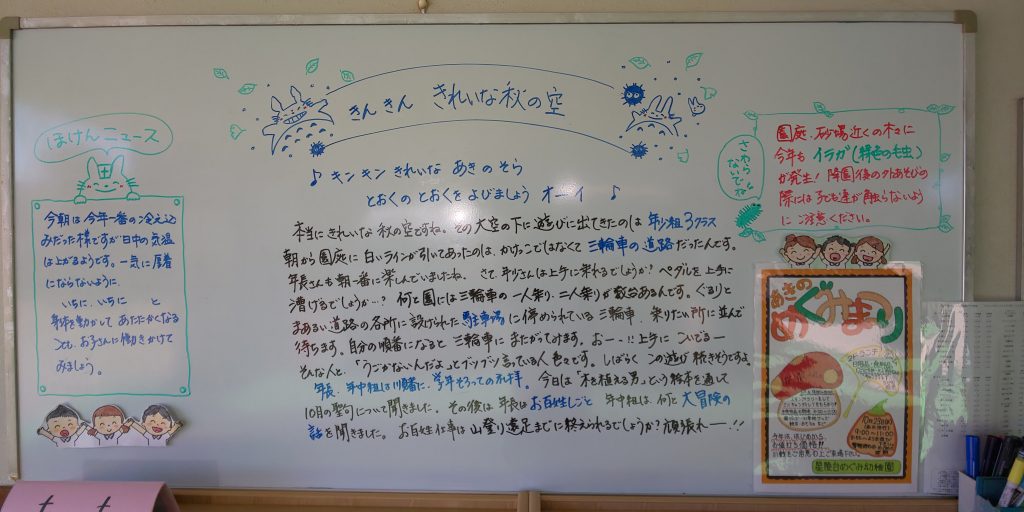 きんきん きれいな秋の空
♪ キンキン きれいな あきのそら
とおくの とおくを よびましょう オーイ ♪
本当にきれいな 秋の空ですね。その大空の下に遊びに出てきたのは 年少組3クラス
朝から園庭に 白いラインが引いてあったのは、かけっこではなくて 三輪車の道路だったんです。
年長さんも朝一番に楽しんでいましたね。さて、年少さんは上手に乗れるでしょうか?ペダルを上手に
漕げるでしょうか…? 何と園には三輪車の一人乗り、二人乗りが数台あるんです。ぐるりと
まあるい道路の各所に設けられた 駐車場に停められている三輪車、乗りたい所に並んで
待ちます。自分の順番になると 三輪車にまたがってみます。おー!!上手に こいでるー
そんな人と、「うごかないんだよ」とブツブツ言っている人 色々です。しばらく この遊び 続きそうですよ
年長、年中組は 順番に、学年そろっての礼拝。今日は「木を植える男」という絵本を通して
10月の聖句について聞きました。その後は、年長はお百姓しごと 年中組は 大冒険の
話を聞きました。お百姓仕事は 山登り遠足までに終えられるでしょうか?頑張れー!!
ほけんニュース
今朝は今年一番の冷え込
みだった様ですが日中の気温
は上がるようです。一気に厚着
にならないように、
いちに、いちに と
身体を動かして あたたかくなる
ことも、お子さんに働きかけて
みましょう。
さわらないでね
園庭、砂場近くの木々に
今年も イラガ(緑色の毛虫)
が発生! 降園後の外あそびの
際には 子ども達が触らないよう
に ご注意ください。
あきの
めぐみまつり
10月23日
9:00〜11:00
星陵台めぐみ幼稚園